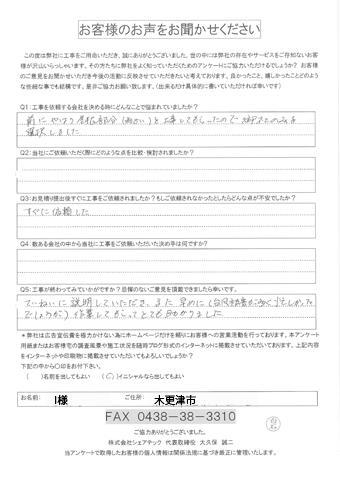 お客様のお声をお聞かせください
この度は弊社に工事をご用命いただき、誠にありがとうございました。世の中には弊社の存在やサービスをご存知ないお客
様が沢山いらっしゃいます。その方たちに弊社をよく知っていただくためのアンケートにご協力いただけるでしょうか？ お客様
のご意見をお聞かせいただき今後の活動に反映させていただきたいと考えております。良かったこと、嬉しかったことどのよう
な些細な事でも結構です、是非ご協力お願い致します。(出来るだけ具体的に書いていただければ幸いです)
Q1:工事を依頼する会社を決める時にどんなことで悩まれていましたか？
前に やはり 屋根部分 を工事してもらったので
選択しました
Q2:当社にご依頼いただく際にどのような点を比較・検討されましたか？
Q3:お見積り提出後すぐに工事をご依頼されましたか？もしご依頼されなかったとしたらどんな点が不安でしたか？
すぐに依頼した
Q4:数ある会社の中から当社に工事をご依頼いただいた決め手は何ですか？
Q5:工事が終わってみていかがですか？忌憚のないご意見を頂戴できましたら幸いです。
ていねいに説明していただき、また 早めに(台風
でしょうが) 作業してもらってとても助かりました
＊弊社は広告宣伝費を極力かけない為にホームページだけを頼りにお客様への営業活動を行っております。本アンケート
用紙またはお客様宅での調査風景や施工状況を随時ブログ形式のインターネットに掲載させていただいております。上記内容
をインターネットや印刷物に掲載させていただいてもよろしいでしょうか？
下記の中から〇印をお付下さい。
( )名前を出してもよい (〇)イニシャルなら出してもよい
お名前： I様 ご住所： 木更津市
FAX 0438-38-3310
ご協力ありがとうございました。
株式会社シェアテック 代表取締役 大久保 誠二
当アンケートで取得したお客様の個人情報は関係法規に基づき厳正に管理いたします。